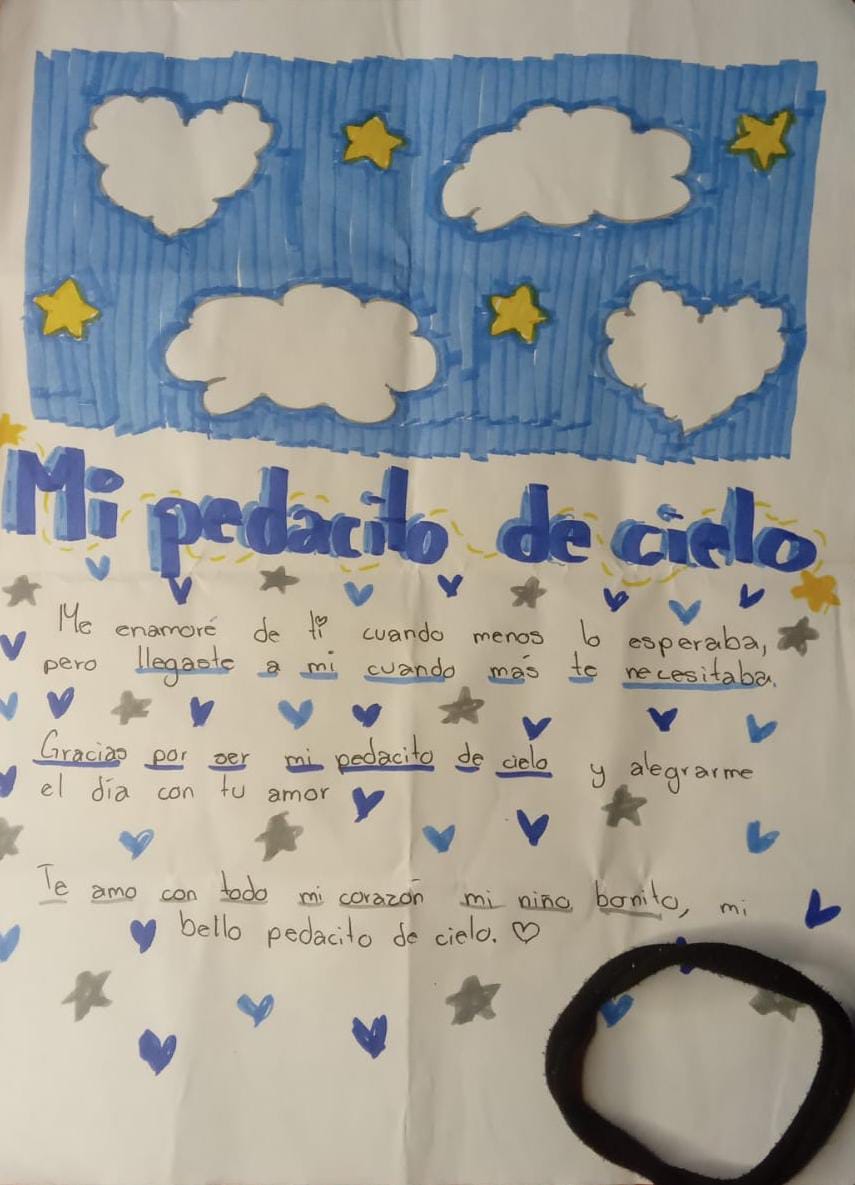 Mi pedacito de cielo
Me enamoré de ti cuando menos lo esperaba,
pero llegaste a mi cuando más te necesitaba.
Gracias por ser mi pedacito de cielo y alegrarme
el día con tu amor
Te amo con todo mi corazón mi niño bonito, mi
bello pedacito de cielo. ♡